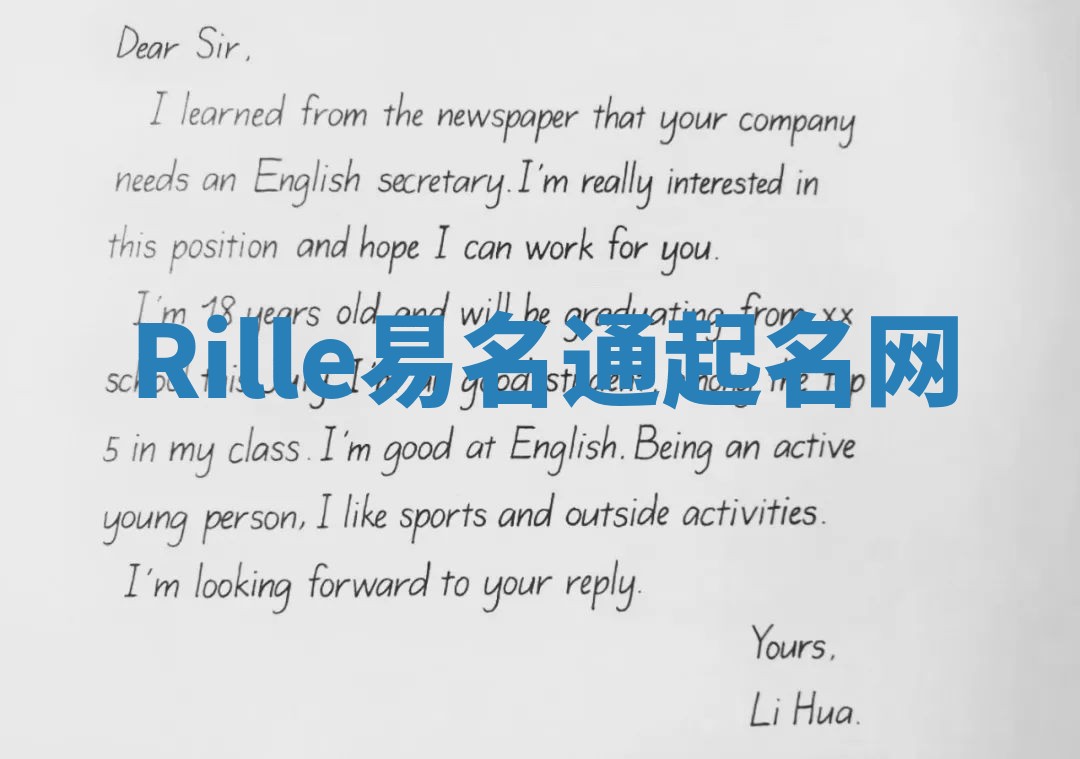 Dear Sir,
I learned from the newspaper that your company
needs an English secretary. I'm really interested in
this position and hope I can work for you.
I'm 18 years old and will be graduating from xx
Rille易名通起名网
school this July. I'm a good student among the top
5 in my class. I'm good at English. Being an active
young person, I like sports and outside activities.
I'm looking forward to your reply.
Yours,
Li Hua.